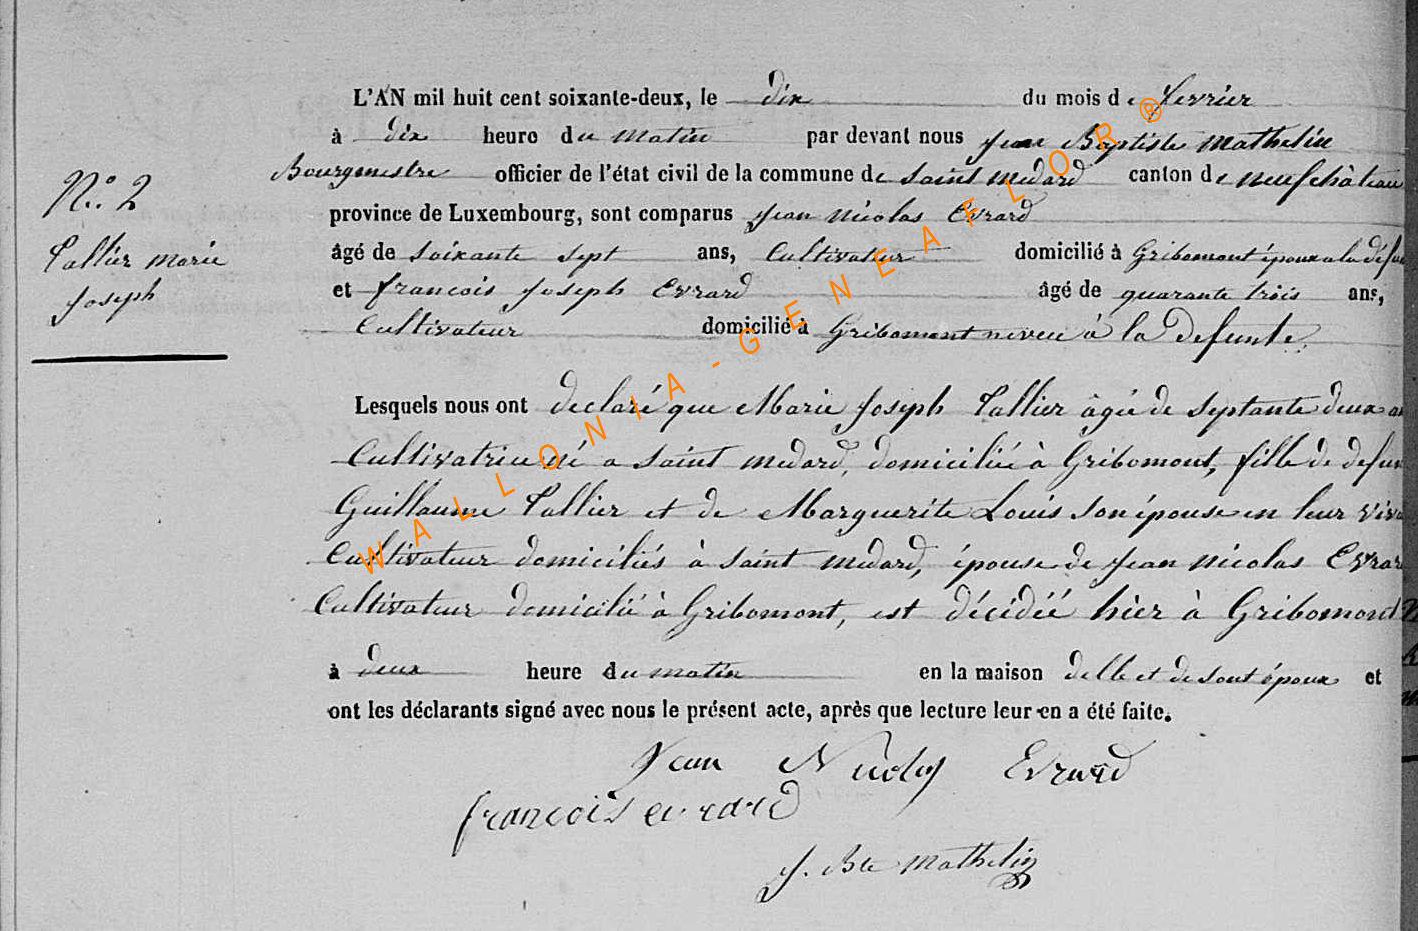 L'AN mil huit cent soixante-deux, le dix du mois de fevrier
à dix heure du matin par devant nous Jean Baptiste Mathelin
Bourgmestre officier de l'état civil de la commune de Saint Medard canton de neufchâteau
province de Luxembourg, sont comparus Jean Nicolas Evrard
âgé de soixante sept ans, Cultivateur domicilié à Gribomont époux a la défun
et françois Joseph Evrard âgé de quarante trois ans,
Cultivateur domicilié à Gribomont neveu à la defunte.
N.o 2
Tallier marie
Joseph
Lesquels nous ont declaré que Marie Joseph Tallier âgée de septante deux an
Cultivatrice né a saint medard, domiciliée à Gribomont, fille de defun
Guillaume Tallier et de Marguerite Louis son épouse en leur viva
Cultivateur domiciliés à saint medard, épouse de Jean Nicolas Evrar
Cultivateur domicilié à Gribomont, est décidée hier à Gribomond
à deux heure du matin en la maison delle et de sont époux et
ont les déclarants signé avec nous le présent acte, après que lecture leur en a été faite.
Jean Nicolas Evrard
francois evrard
J. Bte Mathelin
WALLONIA-GENEAFLOR®